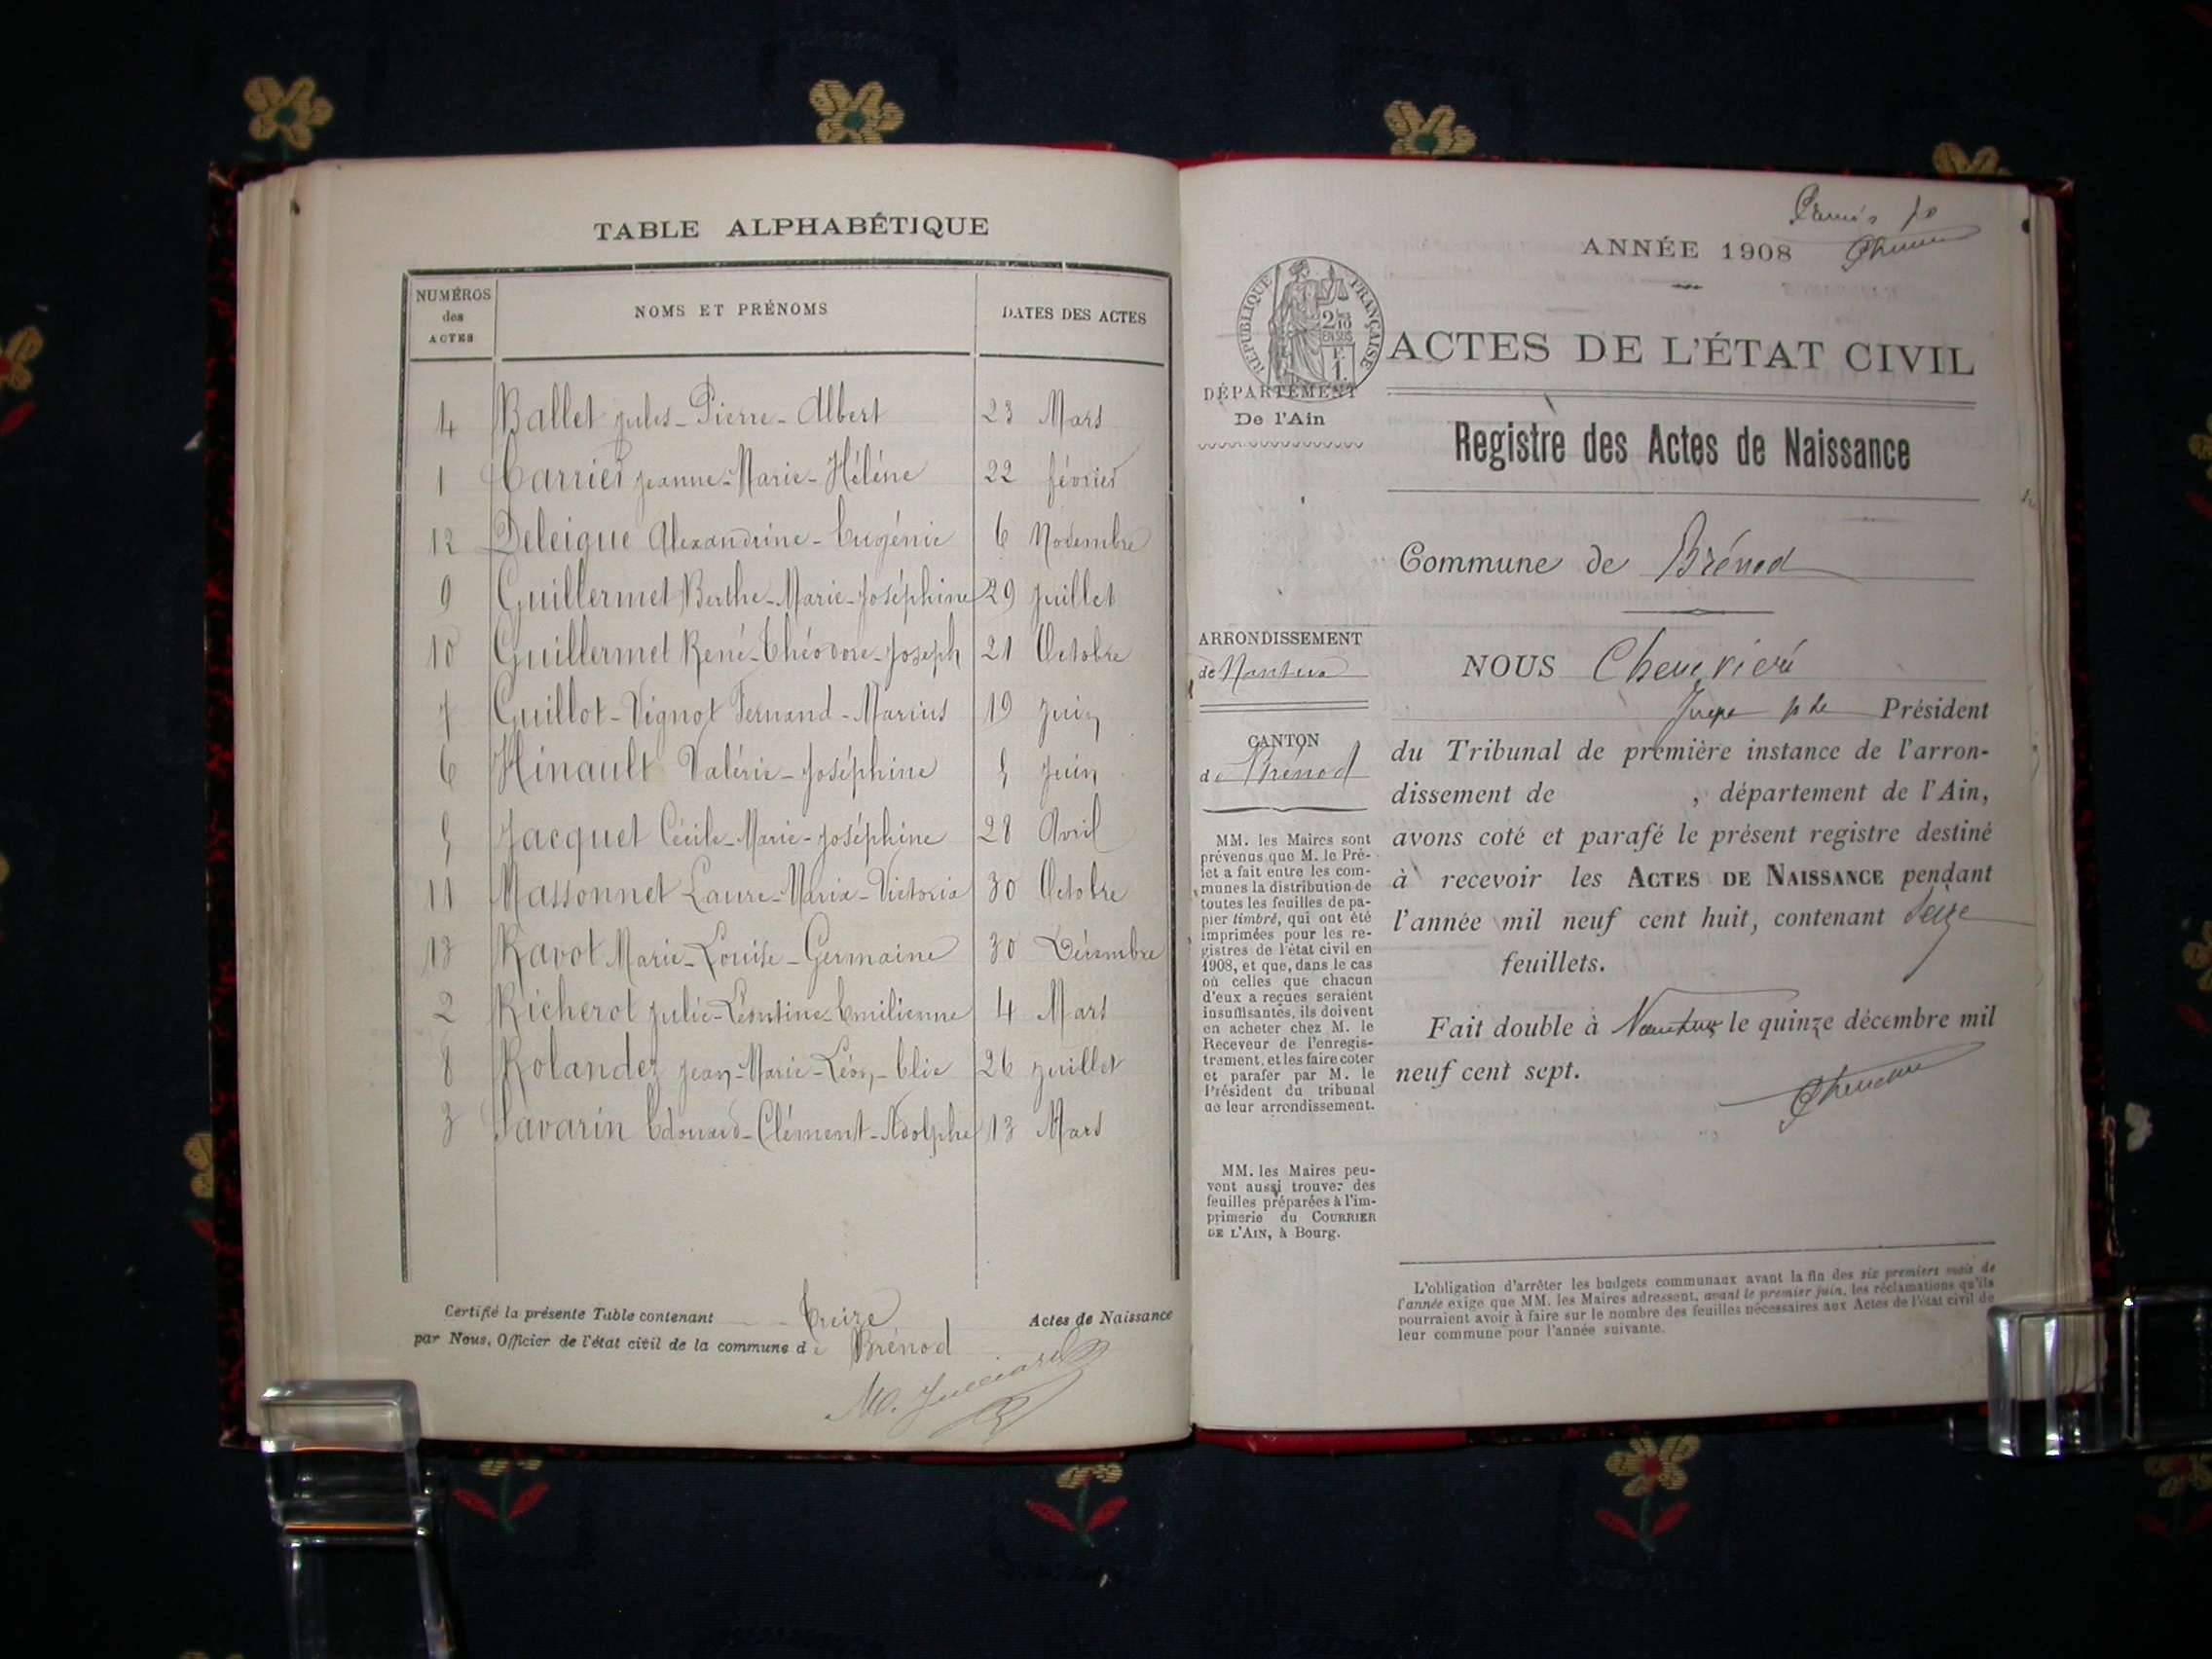 TABLE ALPHABÉTIQUE
NUMÉROS des ACTES
NOMS ET PRÉNOMS
DATES DES ACTES
4 Ballet Jules-Pierre-Albert 23 Mars
1 Carrier Jeanne-Marie-Hélène 22 février
12 Deleigue Alexandrine-Eugénie 6 Novembre
9 Guillermet Berthe-Marie-Joséphine 29 Juillet
10 Guillermet René-Théodore-Joseph 21 Octobre
7 Guillot-Vignot Fernand-Marius 19 Juin
6 Hinault Valérie-Joséphine 5 Juin
5 Jacquet Cécile-Marie-Joséphine 28 Avril
11 Massonnet Laure-Maria-Victoria 30 Octobre
13 Ravot Marie-Louise-Germaine 30 Décembre
2 Richerot Julie-Léontine-Emilienne 4 Mars
8 Rolandez Jean-Marie-Léon-Elie 26 Juillet
3 Savarin Edouard-Clément-Adolphe 13 Mars
Certifié la présente Table contenant Treize Actes de Naissance
par Nous, Officier de l'état civil de la commune de Brénod
ANNÉE 1908
RÉPUBLIQUE FRANÇAISE
2/10 EN SUS
F. 1.
ACTES DE L'ÉTAT CIVIL
DÉPARTEMENT
De l'Ain
Registre des Actes de Naissance
Commune de Brénod
ARRONDISSEMENT
de Nantua
CANTON
de Brénod
MM. les Maires sont
prévenus que M. le Pré-
fet a fait entre les com-
munes la distribution de
toutes les feuilles de pa-
pier timbré, qui ont été
imprimées pour les re-
gistres de l'état civil en
1908, et que, dans le cas
où celles que chacun
d'eux a reçues seraient
insuffisantes, ils doivent
en acheter chez M. le
Receveur de l'enregis-
trement, et les faire coter
et parafer par M. le
Président du tribunal
de leur arrondissement.
MM. les Maires peu-
vent aussi trouver des
feuilles préparées à l'im-
primerie du COURRIER
DE L'AIN, à Bourg.
NOUS
Président
du Tribunal de première instance de l'arron-
dissement de , département de l'Ain,
avons coté et parafé le présent registre destiné
à recevoir les ACTES DE NAISSANCE pendant
l'année mil neuf cent huit, contenant seize
feuillets.
Fait double à Nantua le quinze décembre mil
neuf cent sept.
L'obligation d'arrêter les budgets communaux avant la fin des six premiers mois de
l'année exige que MM. les Maires adressent, avant le premier juin, les réclamations qu'ils
pourraient avoir à faire sur le nombre des feuilles nécessaires aux Actes de l'état civil de
leur commune pour l'année suivante.